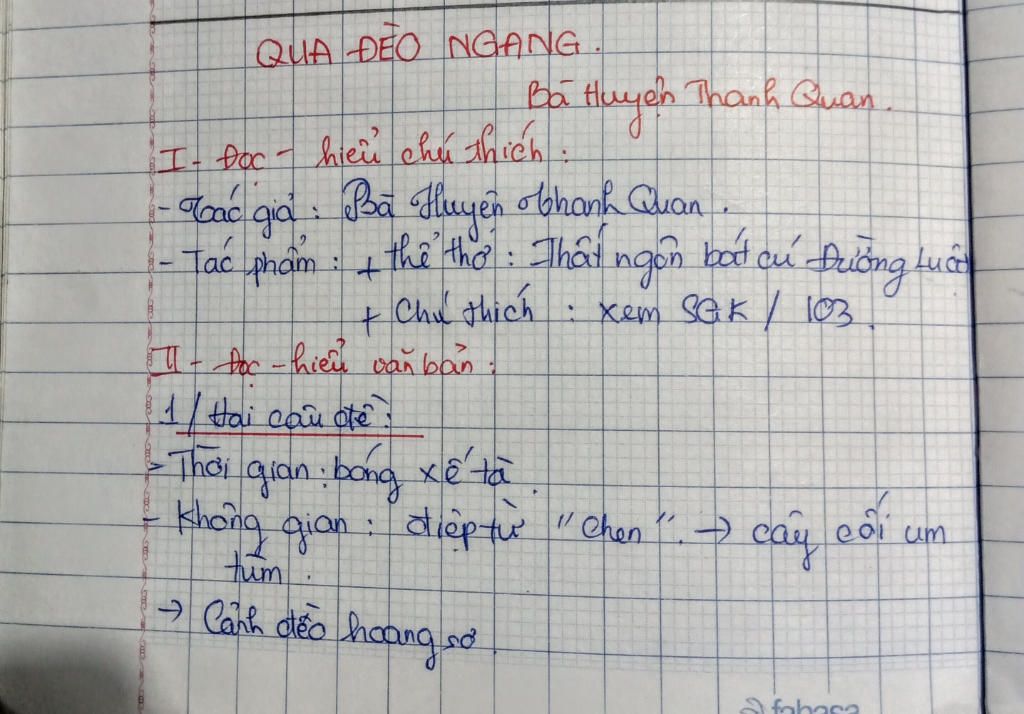 QUA ĐÈO NGANG.
Bà Huyện Thanh Quan.
I - Đọc - hiểu chú thích :
- Tác giả : Bà Huyện Thanh Quan.
- Tác phẩm : + thể thơ : Thất ngôn bát cú Đường Luật
+ Chú thích : xem SGK / 103.
II - Đọc - hiểu văn bản :
1 / Hai câu đề :
- Thời gian : bóng xế tà.
- Không gian : điệp từ "chen". → cây cối um
tùm.
→ Cảnh đèo hoang sơ.
fahasa